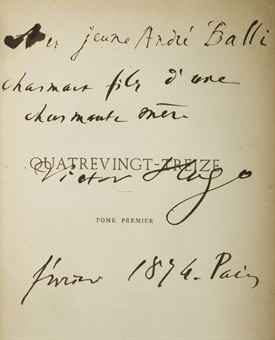 Au jeune André Balli
charmant fils d'une
charmante mère.
QUATREVINGT-TREIZE
Victor Hugo
TOME PREMIER
février 1874. Paris